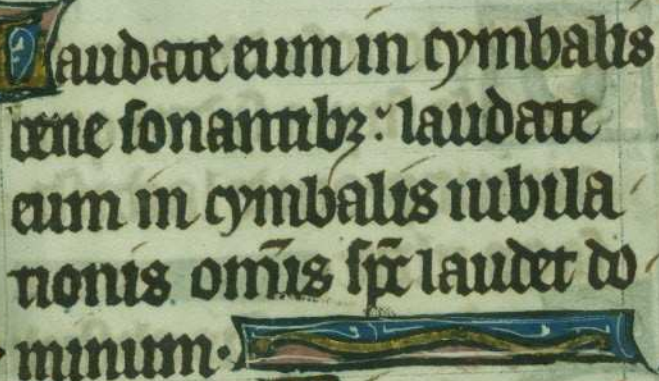 Laudate eum in cymbalis
bene sonantibꝫ: laudate
eum in cymbalis iubila
tionis om̄is sp̄c laudet do
minum.